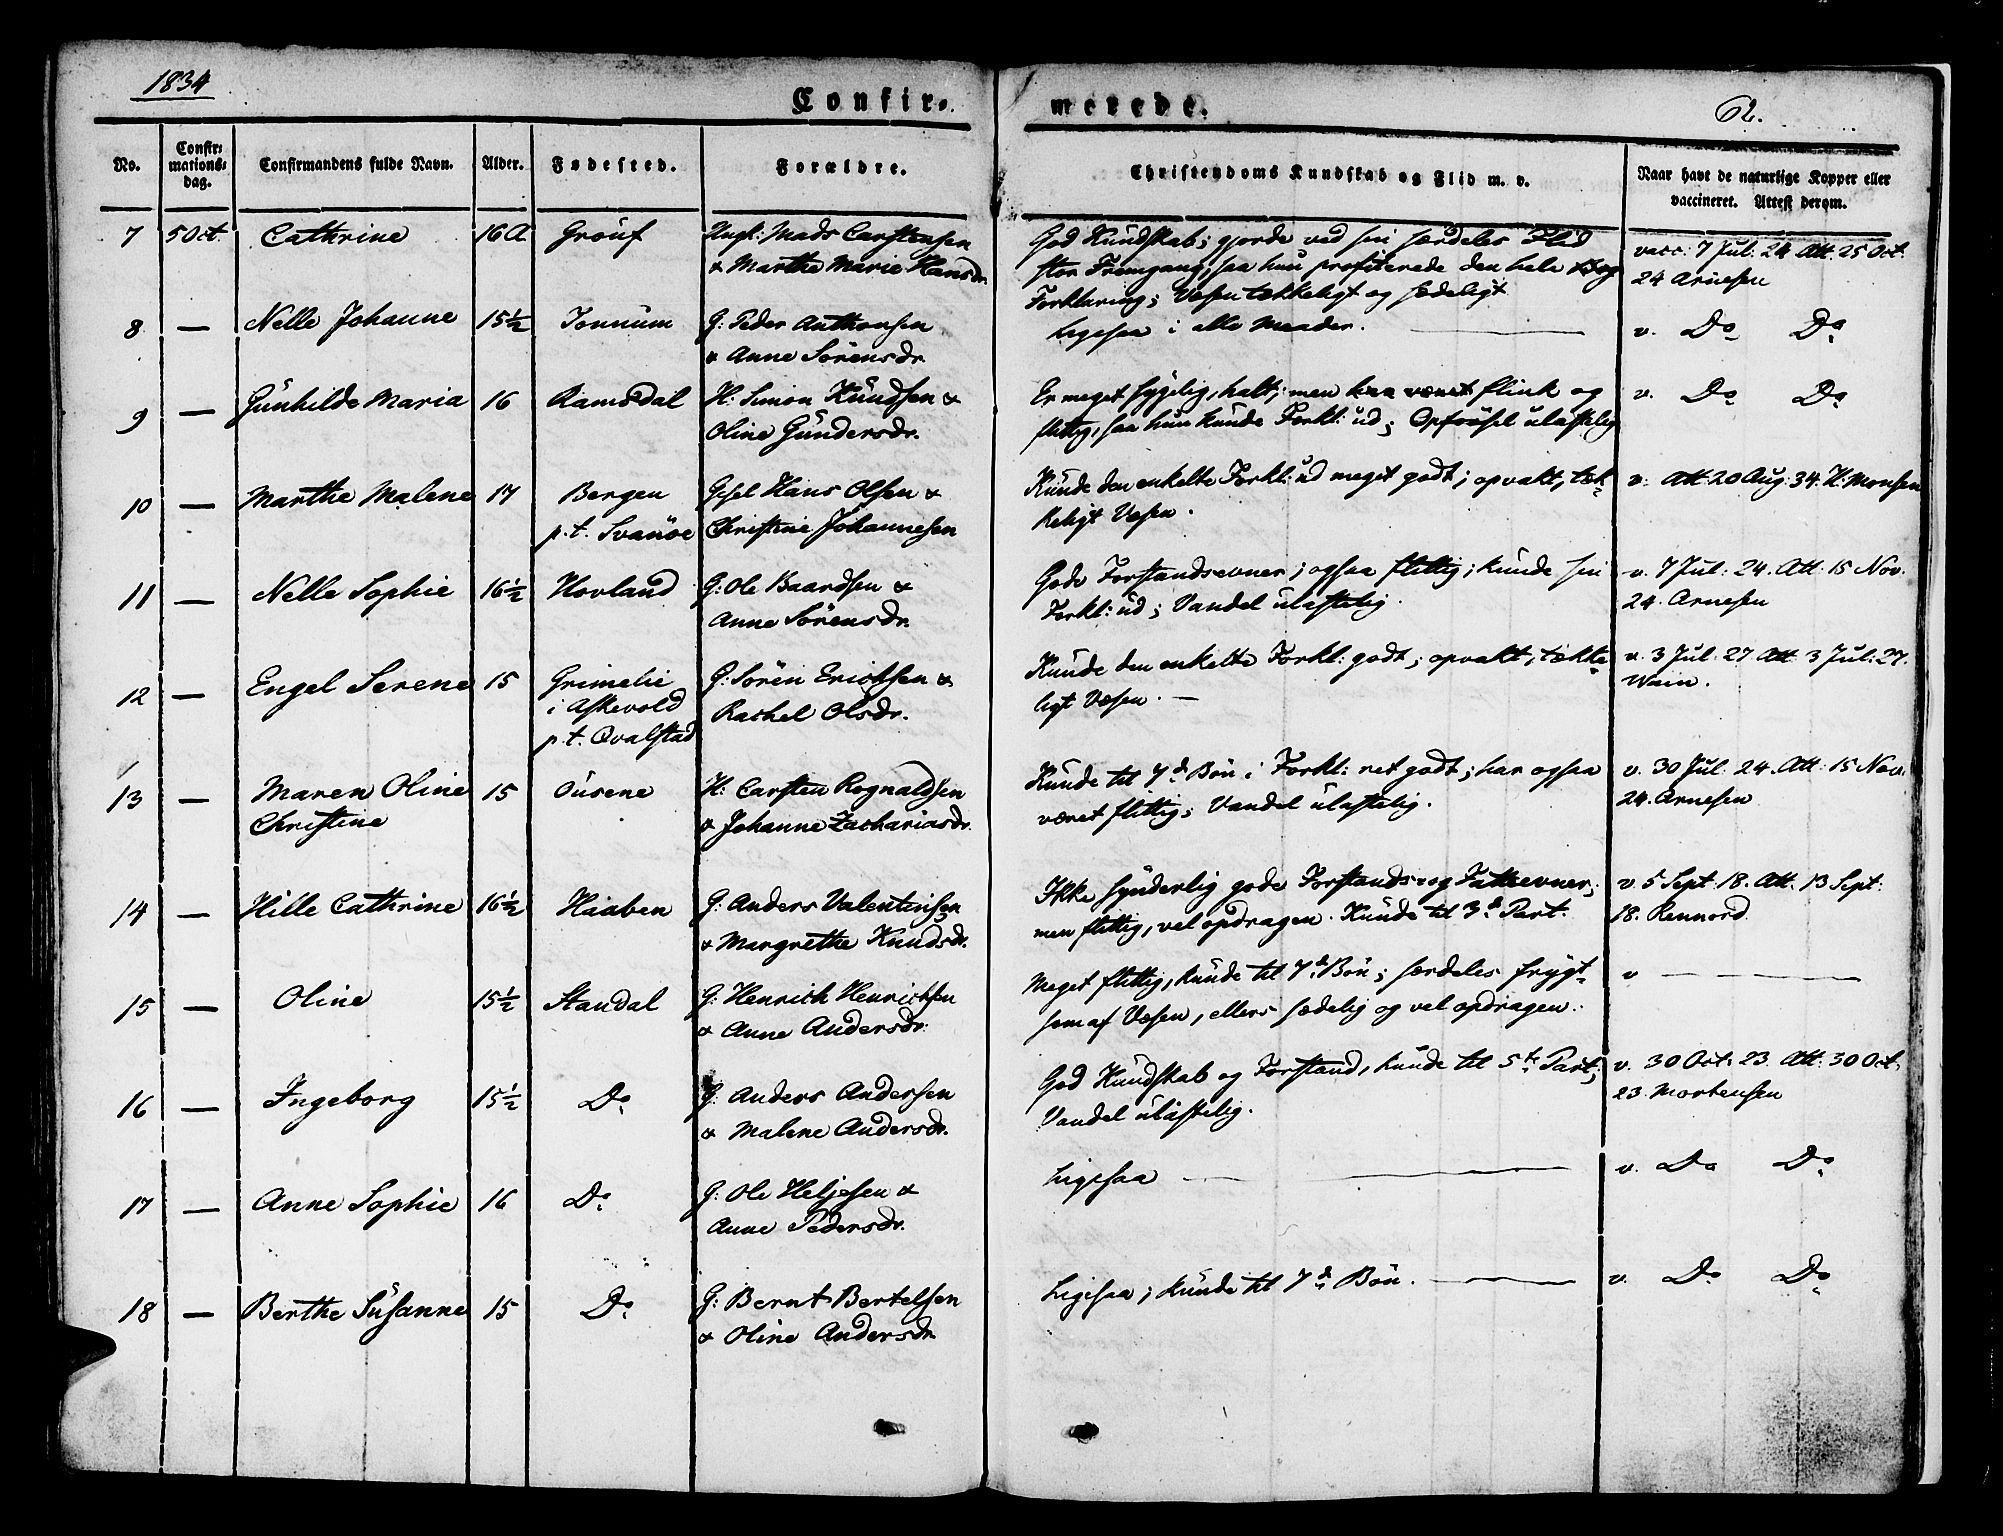 1834
Confir-
merede.
62.
No.
Confir-
mations-
dag.
Confirmandens fulde Navn.
Alder.
Fødested.
Forældre.
Christendoms Kundskab og Flid m. v.
Naar havt de naturlige Kopper eller
vaccineret. Attest derom.
7 5 Oct Cathrine 16 A Gröuf Ungk: Mads Carstensen
& Marthe Marie Hansdr.
God Kundskab; gjorde ved sin særdeles Flid
stor Fremgang, saa hun profiterede den hele Bog
Forklaring; Væsen tækkeligt og sædeligt
vacc: 7 Jul: 24 Att: 25 Oct:
24 Arnesen
8 — Nelle Johanne 15½ Tonnum G: Peder Anthonsen
& Anne Sörensdr.
Ligesaa i alle Maader.
v. Do Do
9 — Gunhilde Maria 16 Ramsdal H: Simon Knudsen &
Oline Gundersdr.
Er meget sygelig, halt; men har været flink og
flittig, saa hun kunde Forkl: ud; Opførsel ulastelig
v. Do Do
10 — Marthe Malene 17 Bergen Gesel Hans Olsen &
p.t. Svanöe Christine Johannesen
Kunde den enkelte Forkl: ud meget godt; opvakt, tæk-
keligt Væsen.
v. Att 20 Aug: 34. H: Monsen
11 — Nelle Sophie 16½ Hovland G: Ole Baardsen &
Anne Sörensdr.
Gode Forstandsevner; ogsaa flittig; kunde sin
Forkl: ud; Vandel ulastelig.
v. 7 Jul: 24. Att: 15 Nov.
24. Arnesen
12 — Engel Serene 15 Grimelie G: Sörin Erichsen &
i Askevold Rachel Olsdr.
p.t. Qvalstad
Kunde den enkelte Forkl: godt; opvakt, tække-
ligt Væsen. —
v. 3 Jul: 27 Att 3 Jul: 27.
13 — Maren Oline 15 Öusene H: Carsten Rognaldsen
Christine & Johanne Zachariasdr.
Kunde til 7d Bön i Forkl: ret godt; har ogsaa
været flittig; Vandel ulastelig.
v. 30 Jul: 24. Att: 15 Nov.
24. Arnesen
14 — Hille Cathrine 16½ Haaben G: Anders Valentinsen
& Margrethe Knudsdr.
Ikke synderlig gode Forstands- og Fatteevner;
men flittig, vel opdragen. Kunde til 3d Part.
v. 5 Sept: 18. Att: 13 Sept:
18. Rennord.
15 — Oline 15½ Standal G: Henrich Henrichsen
& Anne Andersdr.
Meget flittig, kunde til 7d Bön; særdeles frygt-
som af Væsen, ellers sædelig og vel opdragen.
v —
16 — Ingeborg 15½ Do G: Anders Andersen
& Malene Andersdr.
God Kundskab og Forstand, kunde til 5te Part;
Vandel ulastelig.
v. 30 Oct: 23. Att: 30 Oct.
23. Mortensen
17 — Anne Sophie 16 Do G: Ole Heljesen &
Anne Pedersdr.
Ligesaa —
v. Do Do
18 — Berthe Susanne 15 Do G: Bernt Bertelsen
& Oline Andersdr.
Ligesaa; kunde til 7d Bön.
v. Do Do